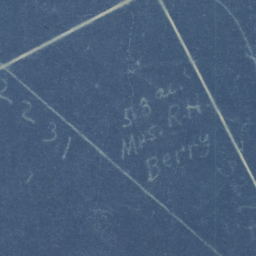 2231
5.3 ac.
Mrs. R.H.
Berry